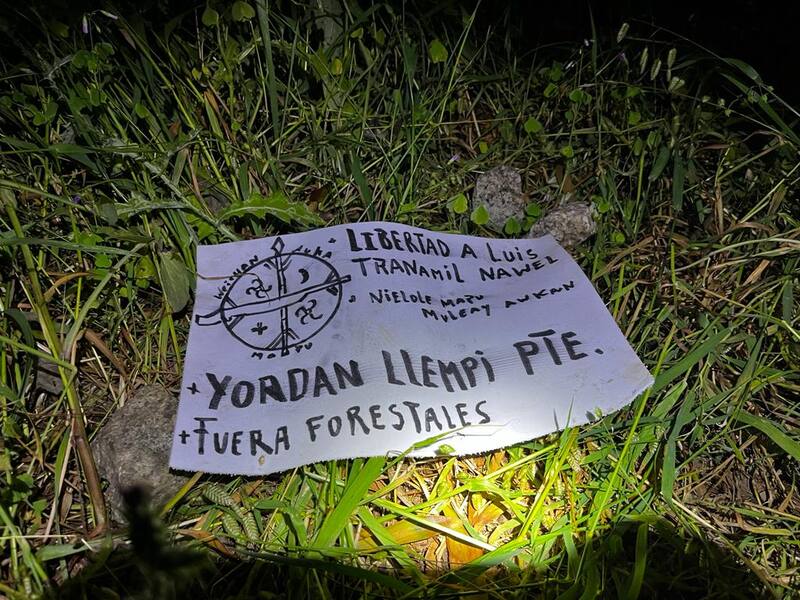 WEICHAN AUKA
MAPU
+ LIBERTAD A LUIS
TRANAMIL NAWEL
NIELOLE MAPU
MULEAY AUKAN
+ YORDAN LLEMPI PTE.
+ FUERA FORESTALES